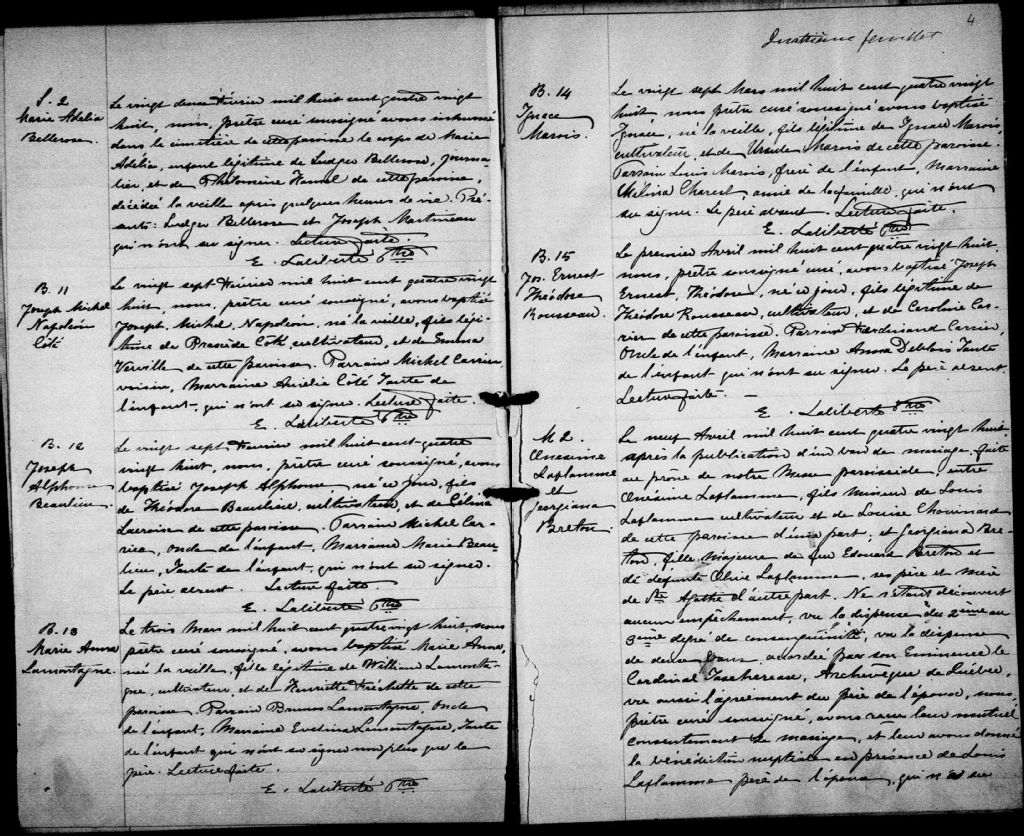 S. 2
Marie Adélia
Bellerose.
Le vingt deux Février mil huit cent quatre vingt
huit, nous, prêtre curé soussigné avons inhumé
dans le cimetière de cette paroisse le corps de Marie
Adélia, enfant légitime de Ludger Bellerose, journa-
lier, et de Philomène Hamel de cette paroisse,
décédé la veille après quelques heures de vie. Pré-
sents: Ludger Bellerose et Joseph Martineau
qui n'ont su signer. Lecture faite.
E. Laliberté Ptre
B. 11
Joseph Michel
Napoléon
Côté
Le vingt sept Février mil huit cent quatre vingt
huit, nous, prêtre curé soussigné, avons baptisé
Joseph Michel Napoléon, né la veille, fils légi-
time de Praxède Côté cultivateur, et de Emma
Verville de cette paroisse. Parrain Michel Carrier
voisin, Marraine Aurélie Côté Tante de
l'enfant, qui n'ont su signer. Lecture faite.
E. Laliberté Ptre
B. 12
Joseph
Alphonse
Beaulieu.
Le vingt sept Février mil huit cent quatre
vingt huit, nous, prêtre curé soussigné, avons
baptisé Joseph Alphonse né ce jour, fils
de Théodore Beaulieu, cultivateur, et de Célina
Lacroix de cette paroisse. Parrain Michel Car-
rier, oncle de l'enfant, Marraine Marie Beau-
lieu, Tante de l'enfant, qui n'ont su signer.
Le père absent. Lecture faite
E. Laliberté Ptre
B. 13
Marie Anna
Lamontagne.
Le trois Mars mil huit cent quatre vingt huit, nous
prêtre curé soussigné, avons baptisé Marie Anna,
née la veille, fille légitime de William Lamonta-
gne, cultivateur, et de Henriette Fréchette de cette
paroisse. Parrain Bruno Lamontagne, oncle
de l'enfant, Marraine Evelina Lamontagne, Tante
de l'enfant qui n'ont su signer non plus que le
père. Lecture faite.
E. Laliberté Ptre
4
Quatrième feuillet
B. 14
Ignace
Marois.
Le vingt sept Mars mil huit cent quatre vingt
huit, nous prêtre curé soussigné avons baptisé
Ignace, né la veille, fils légitime de Ignace Marois,
cultivateur, et de Ursule Marois de cette paroisse.
Parrain Louis Marois, frère de l'enfant, Marraine
Mélina Charest, amie de la famille, qui n'ont
su signer. Le père absent. Lecture faite.
E. Laliberté Ptre
B. 15
Jos. Ernest
Théodore
Rousseau.
Le premier Avril mil huit cent quatre vingt huit,
nous, prêtre soussigné curé, avons baptisé Joseph
Ernest, Théodore, né ce jour, fils légitime de
Théodore Rousseau, cultivateur, et de Caroline Car-
rier de cette paroisse. Parrain Ferdinand Carrier,
Oncle de l'enfant, Marraine Anna Deblois Tante
de l'enfant qui n'ont su signer. Le père absent.
Lecture faite.
E. Laliberté Ptre
M. 2.
Onésime
Laflamme
et
Georgiana
Breton.
Le neuf Avril mil huit cent quatre vingt huit
après la publication d'un ban de mariage, faite
au prône de notre Messe paroissiale, entre
Onésime Laflamme, fils Mineur de Louis
Laflamme cultivateur et de Louise Chouinard
de cette paroisse d'une part; et Georgiana Bre-
ton, fille Majeure de feu Edouard Breton et
de défunte Olive Laflamme, ses père et mère
de Ste Agathe d'autre part. Ne s'étant découvert
aucun empêchement, vu la dispense du 2ème au
3ème degré de consanguinité, vu la dispense
de deux bans, accordée par son Eminence le
Cardinal Taschereau, Archevêque de Québec,
vu aussi l'agrément du père de l'époux, nous,
prêtre curé soussigné, avons reçu leur mutuel
consentement de mariage, et leur avons donné
la bénédiction nuptiale en présence de Louis
Laflamme père de l'époux, qui n'a su